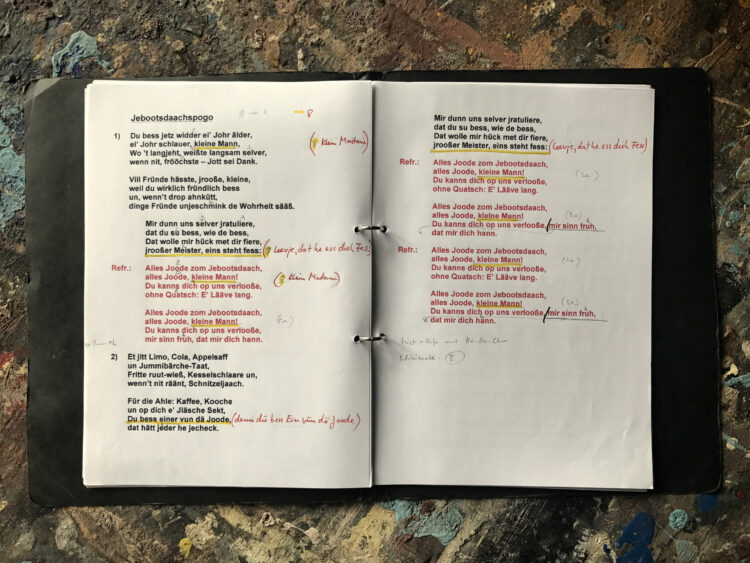 Jebootsdaachspogo
1) Du bess jetz widder ei' Johr älder,
ei' Johr schlauer, kleine Mann,
(Klein Madam)
Wo 't langjeht, weißte langsam selver,
wenn nit, frööchste – Jott sei Dank.
Vill Fründe hässte, jrooße, kleine,
weil du wirklich fründlich bess
un, wenn't drop ahnkütt,
dinge Fründe unjeschmink de Wohrheit sääß.
Mir dunn uns selver jratuliere,
dat du su bess, wie de bess,
Dat wolle mir hück met dir fiere,
jrooßer Meister, eins steht fess:
Refr.: Alles Joode zom Jebootsdaach,
alles Joode, kleine Mann!
(Klein Madam)
Du kanns dich op uns verlooße,
ohne Quatsch: E' Lääve lang.
Alles Joode zom Jebootsdaach,
alles Joode, kleine Mann!
Du kanns dich op uns verlooße,
mir sinn fruh, dat mir dich hann.
2) Et jitt Limo, Cola, Appelsaff
un Jummibärche-Taat,
Fritte ruut-wieß, Kesselschlaare un,
wenn't nit räänt, Schnitzeljaach.
Für die Ahle: Kaffee, Kooche
un op dich e' Jläsche Sekt,
Du bess einer vun dä Joode, (denn du bess Ein vun dä Joode)
dat hätt jeder he jecheck.
Mir dunn uns selver jratuliere,
dat du su bess, wie de bess,
Dat wolle mir hück met dir fiere,
jrooßer Meister, eins steht fess:
Refr.: Alles Joode zom Jebootsdaach,
alles Joode, kleine Mann!
Du kanns dich op uns verlooße,
ohne Quatsch: E' Lääve lang.
Alles Joode zom Jebootsdaach,
alles Joode, kleine Mann!
Du kanns dich op uns verlooße, mir sinn fruh,
dat mir dich hann.
Refr.: Alles Joode zom Jebootsdaach,
alles Joode, kleine Mann!
Du kanns dich op uns verlooße,
ohne Quatsch: E' Lääve lang.
Alles Joode zom Jebootsdaach,
alles Joode, kleine Mann!
Du kanns dich op uns verlooße, mir sinn fruh,
dat mir dich hann.
E